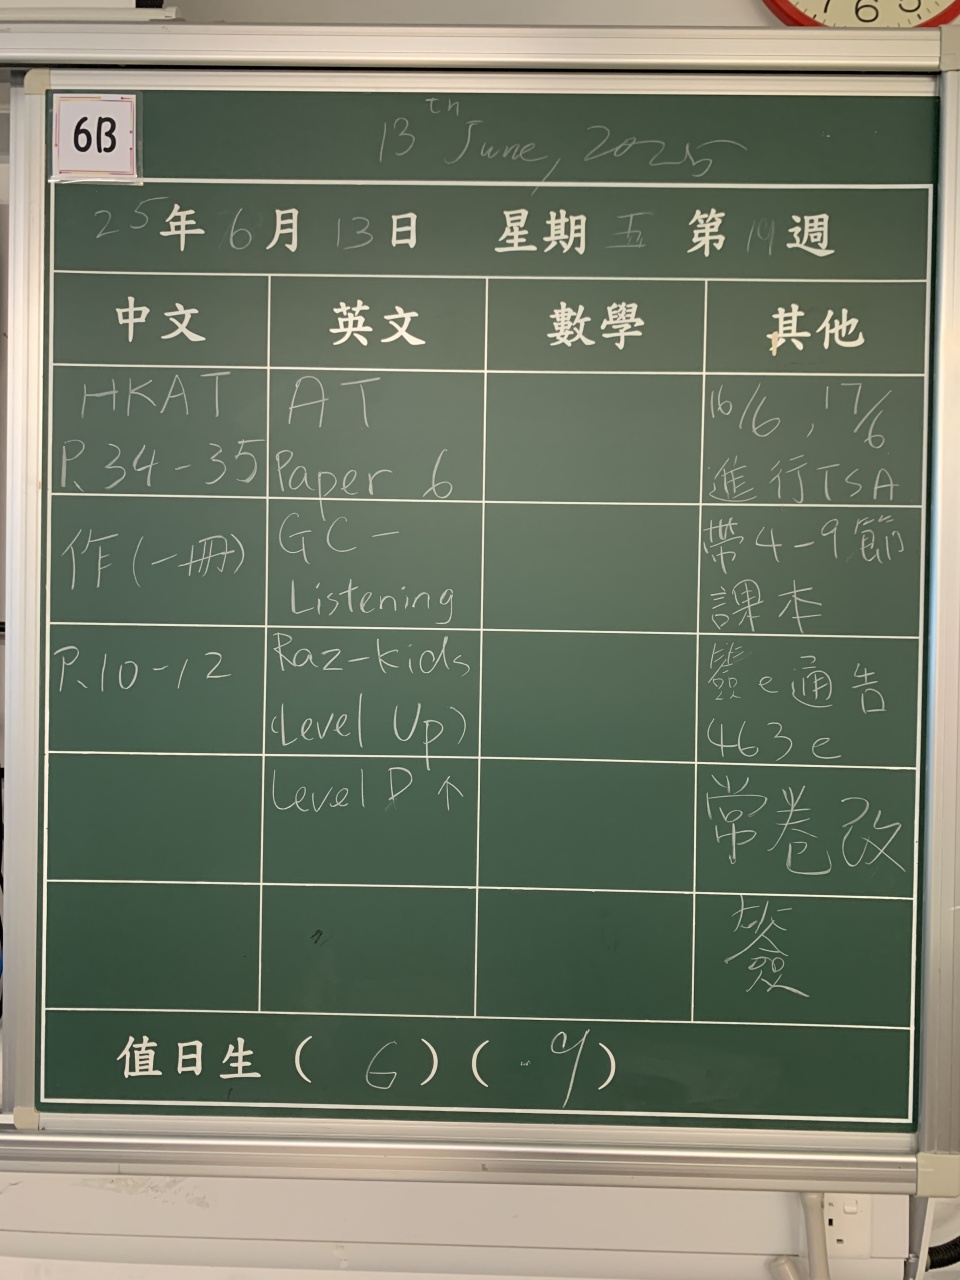 7 6 5
6B
13th June, 2025
25年6月13日 星期五 第19週
中文 英文 數學 其他
HKAT
P.34-35
作(一冊)
P.10-12
AT
Paper 6
GC-
Listening
Raz-kids
(Level Up)
Level D ↑
16/6, 17/6
進行TSA
帶4-9節
課本
簽e通告
463e
常卷改
簽
值日生 ( 6 ) ( 9 )